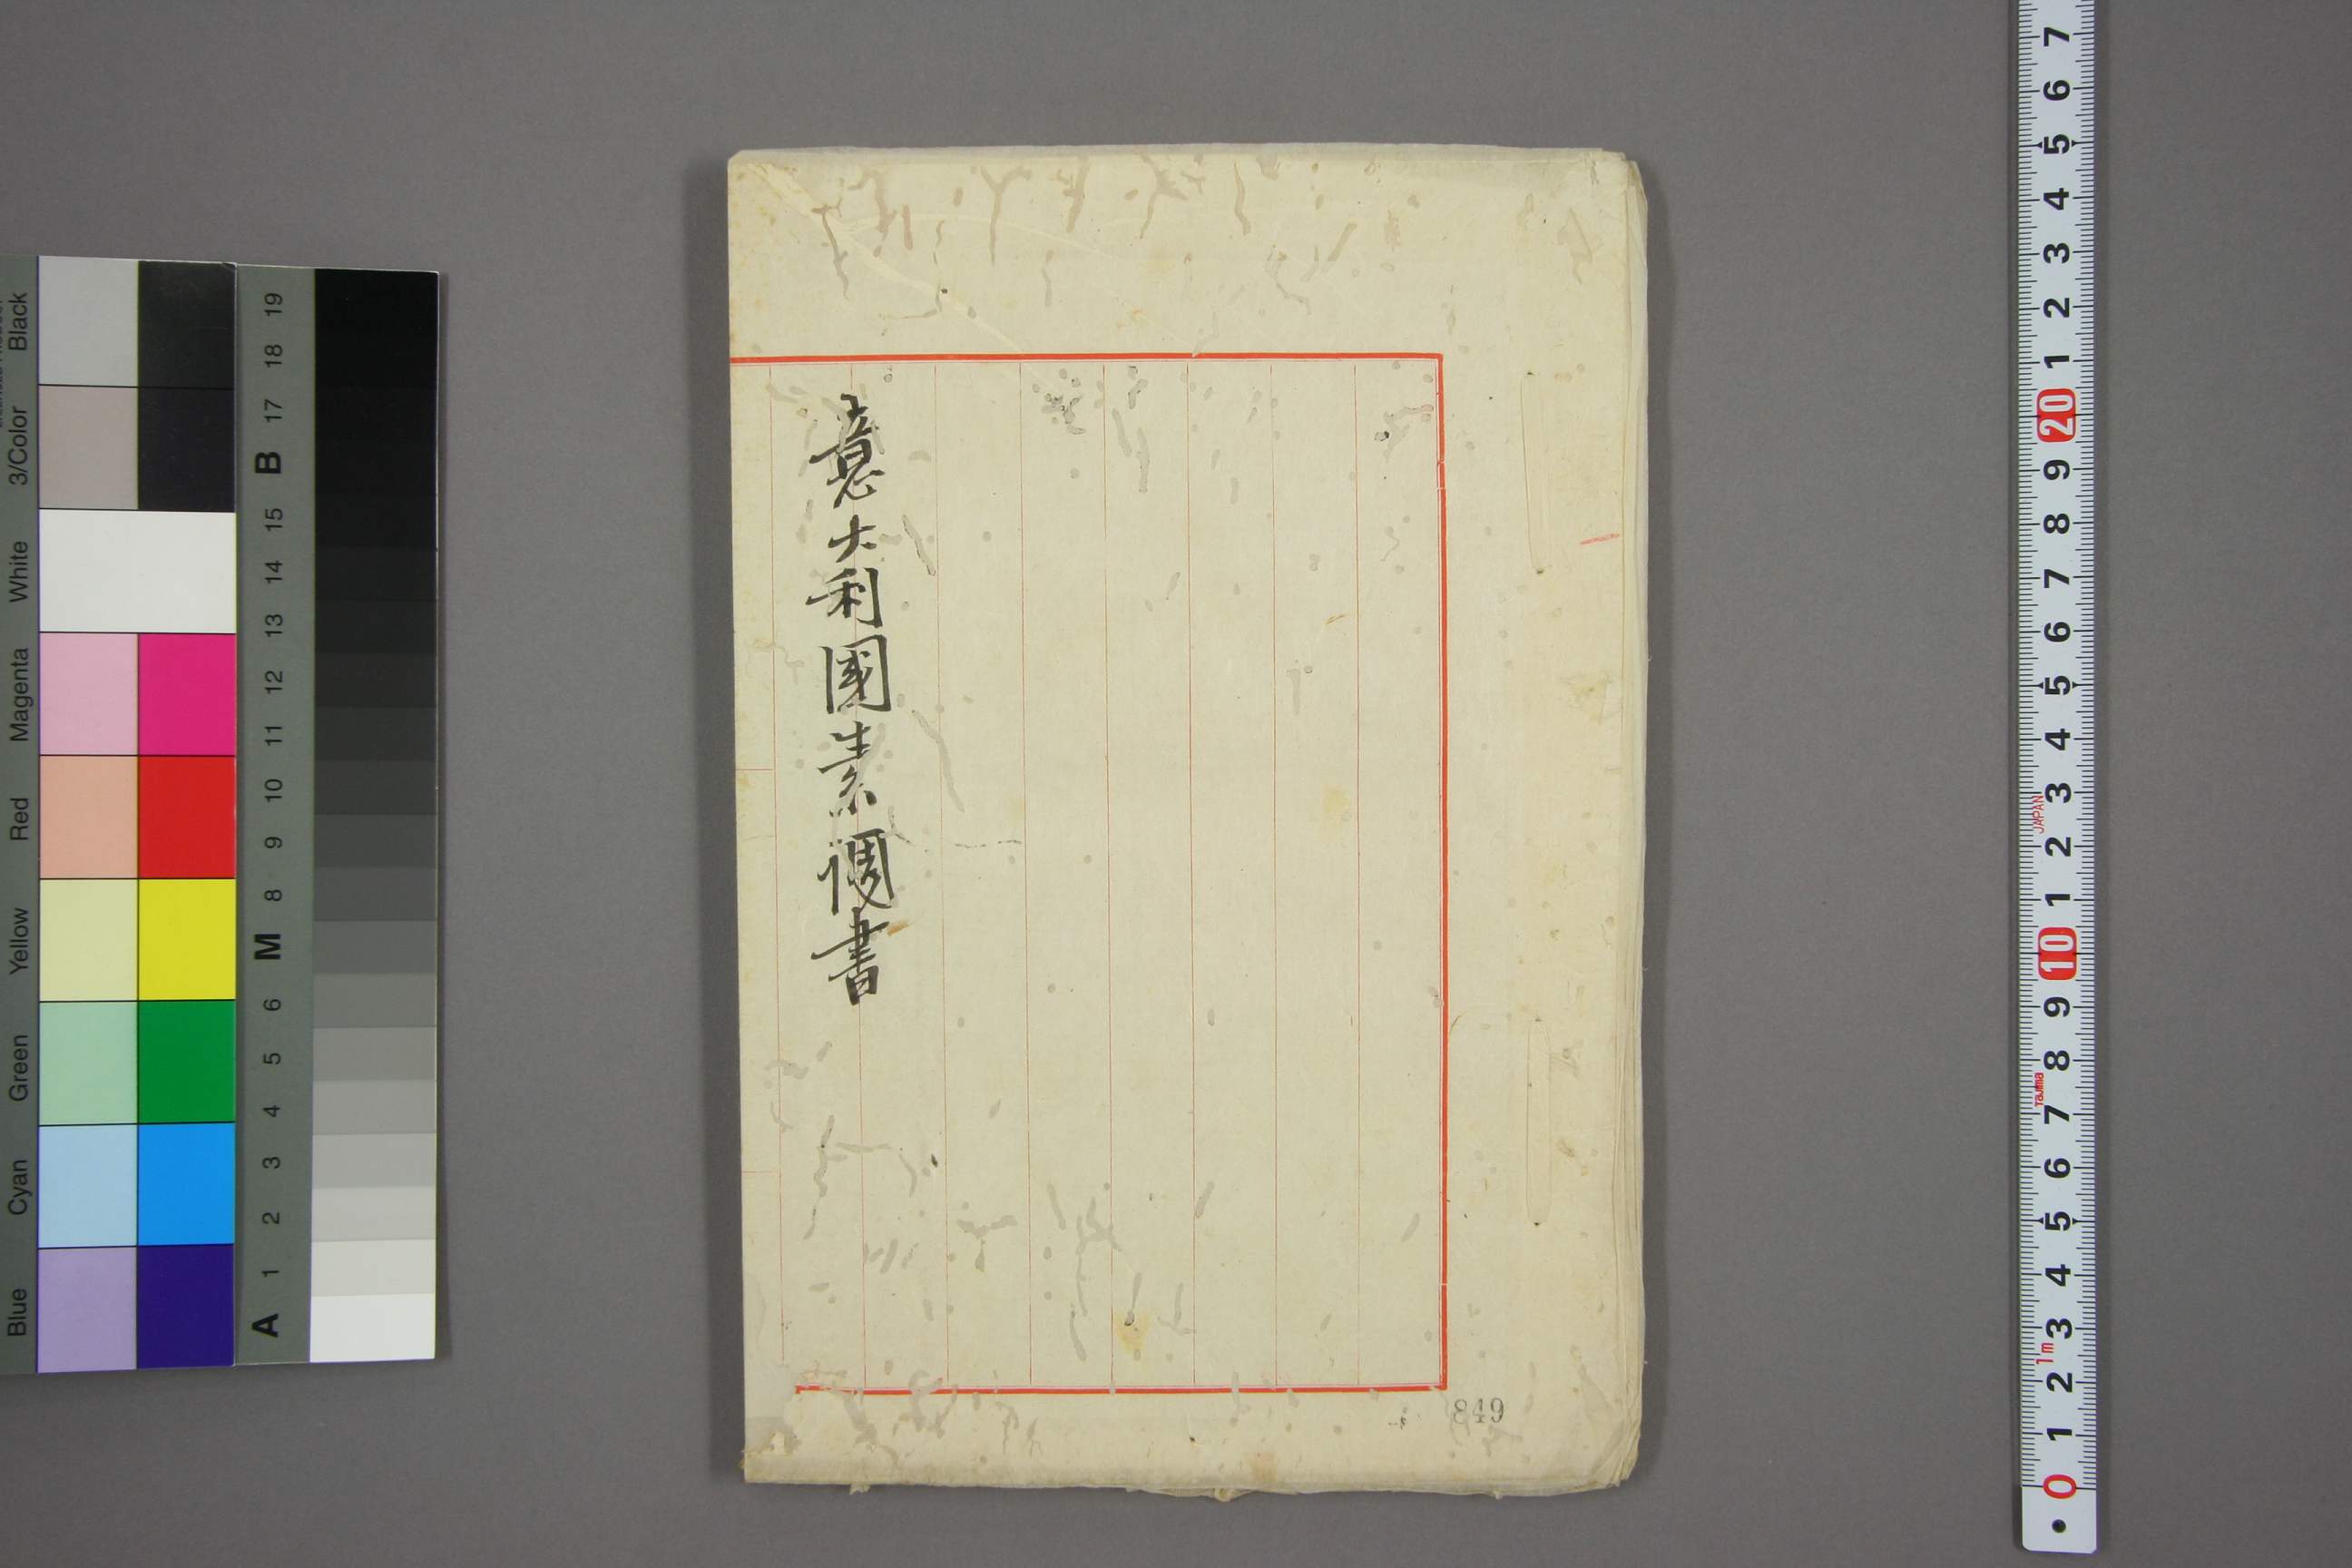 意大利國生糸調書
849
Blue Cyan Green Yellow Red Magenta White 3/Color Black
A 1 2 3 4 5 6 M 8 9 10 11 12 13 14 15 B 17 18 19
7 6 5 4 3 2 1 20 9 8 7 6 5 4 3 2 1 10 9 8 7 6 5 4 3 2 1 0
JAPAN
Tajima
1m